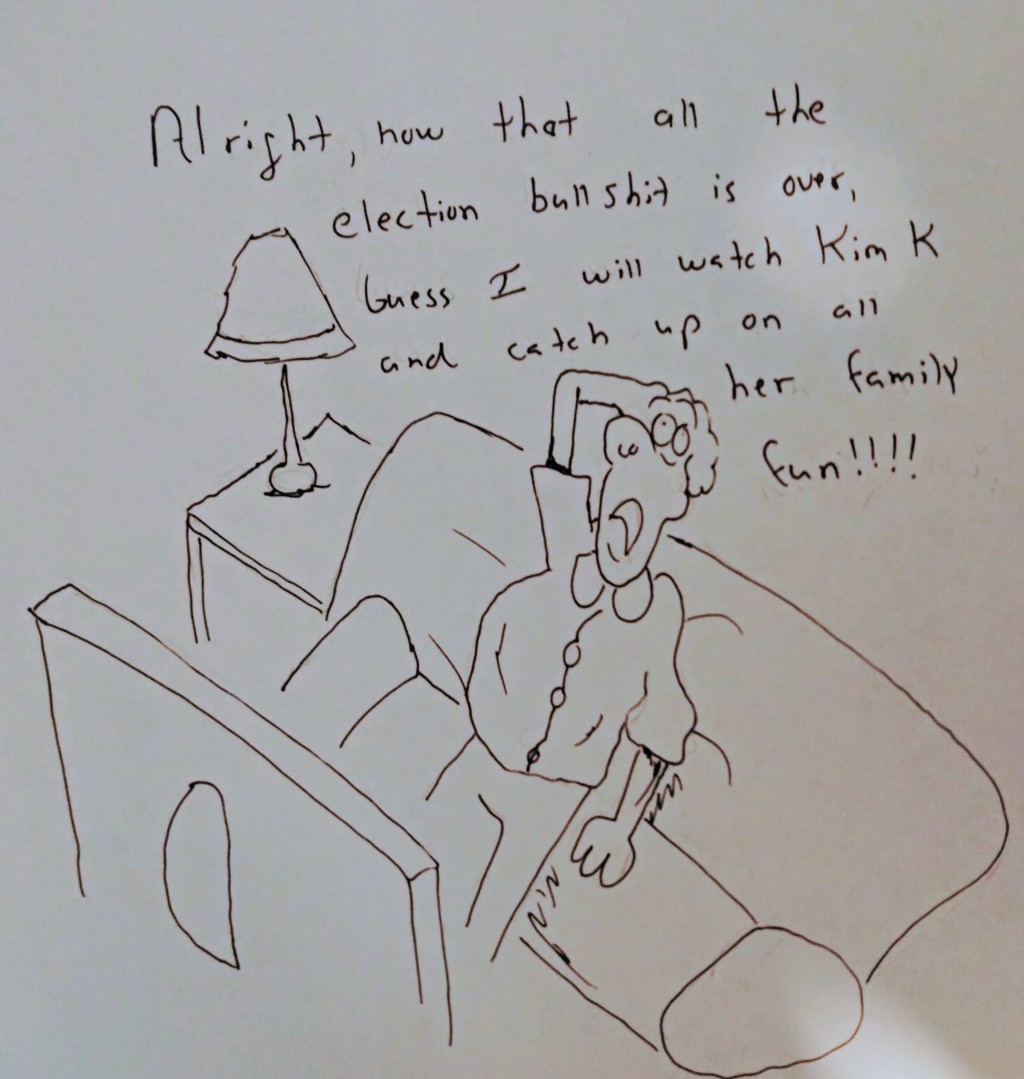 Alright, now that all the
election bullshit is over,
Guess I will watch Kim K
and catch up on all
her family
fun!!!!